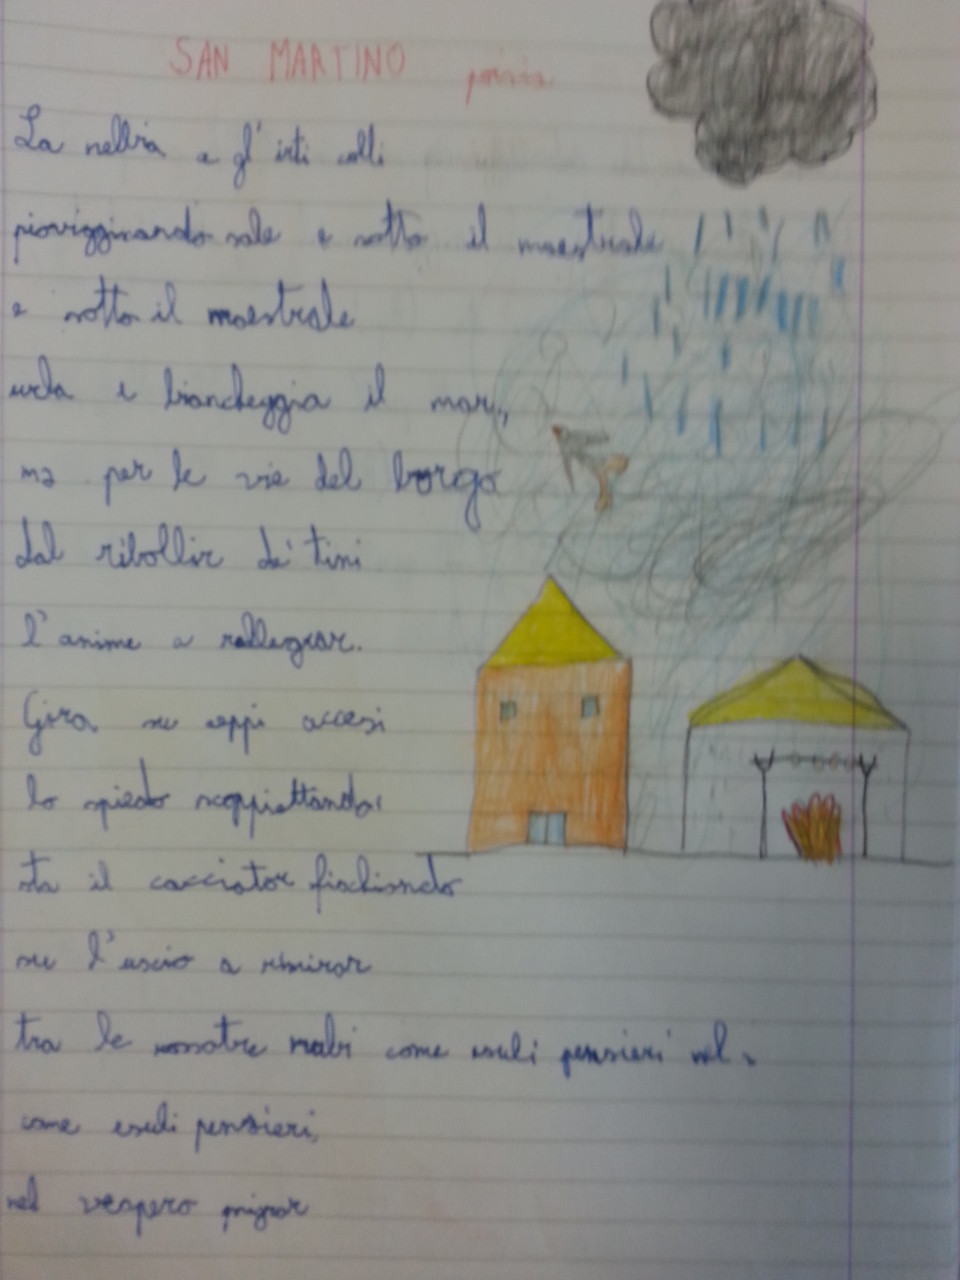 SAN MARTINO poesia
La nebbia a gl'irti colli
piovigginando sale e sotto il maestrale
e sotto il maestrale
urla e biancheggia il mar,
ma per le vie del borgo
dal ribollir de' tini
l'anime a rallegrar.
Gira su ceppi accesi
lo spiedo scoppiettando:
sta il cacciator fischiando
su l'uscio a rimirar
tra le rossatre nubi come esuli pensieri nel
come esuli pensieri,
nel vespero migrar